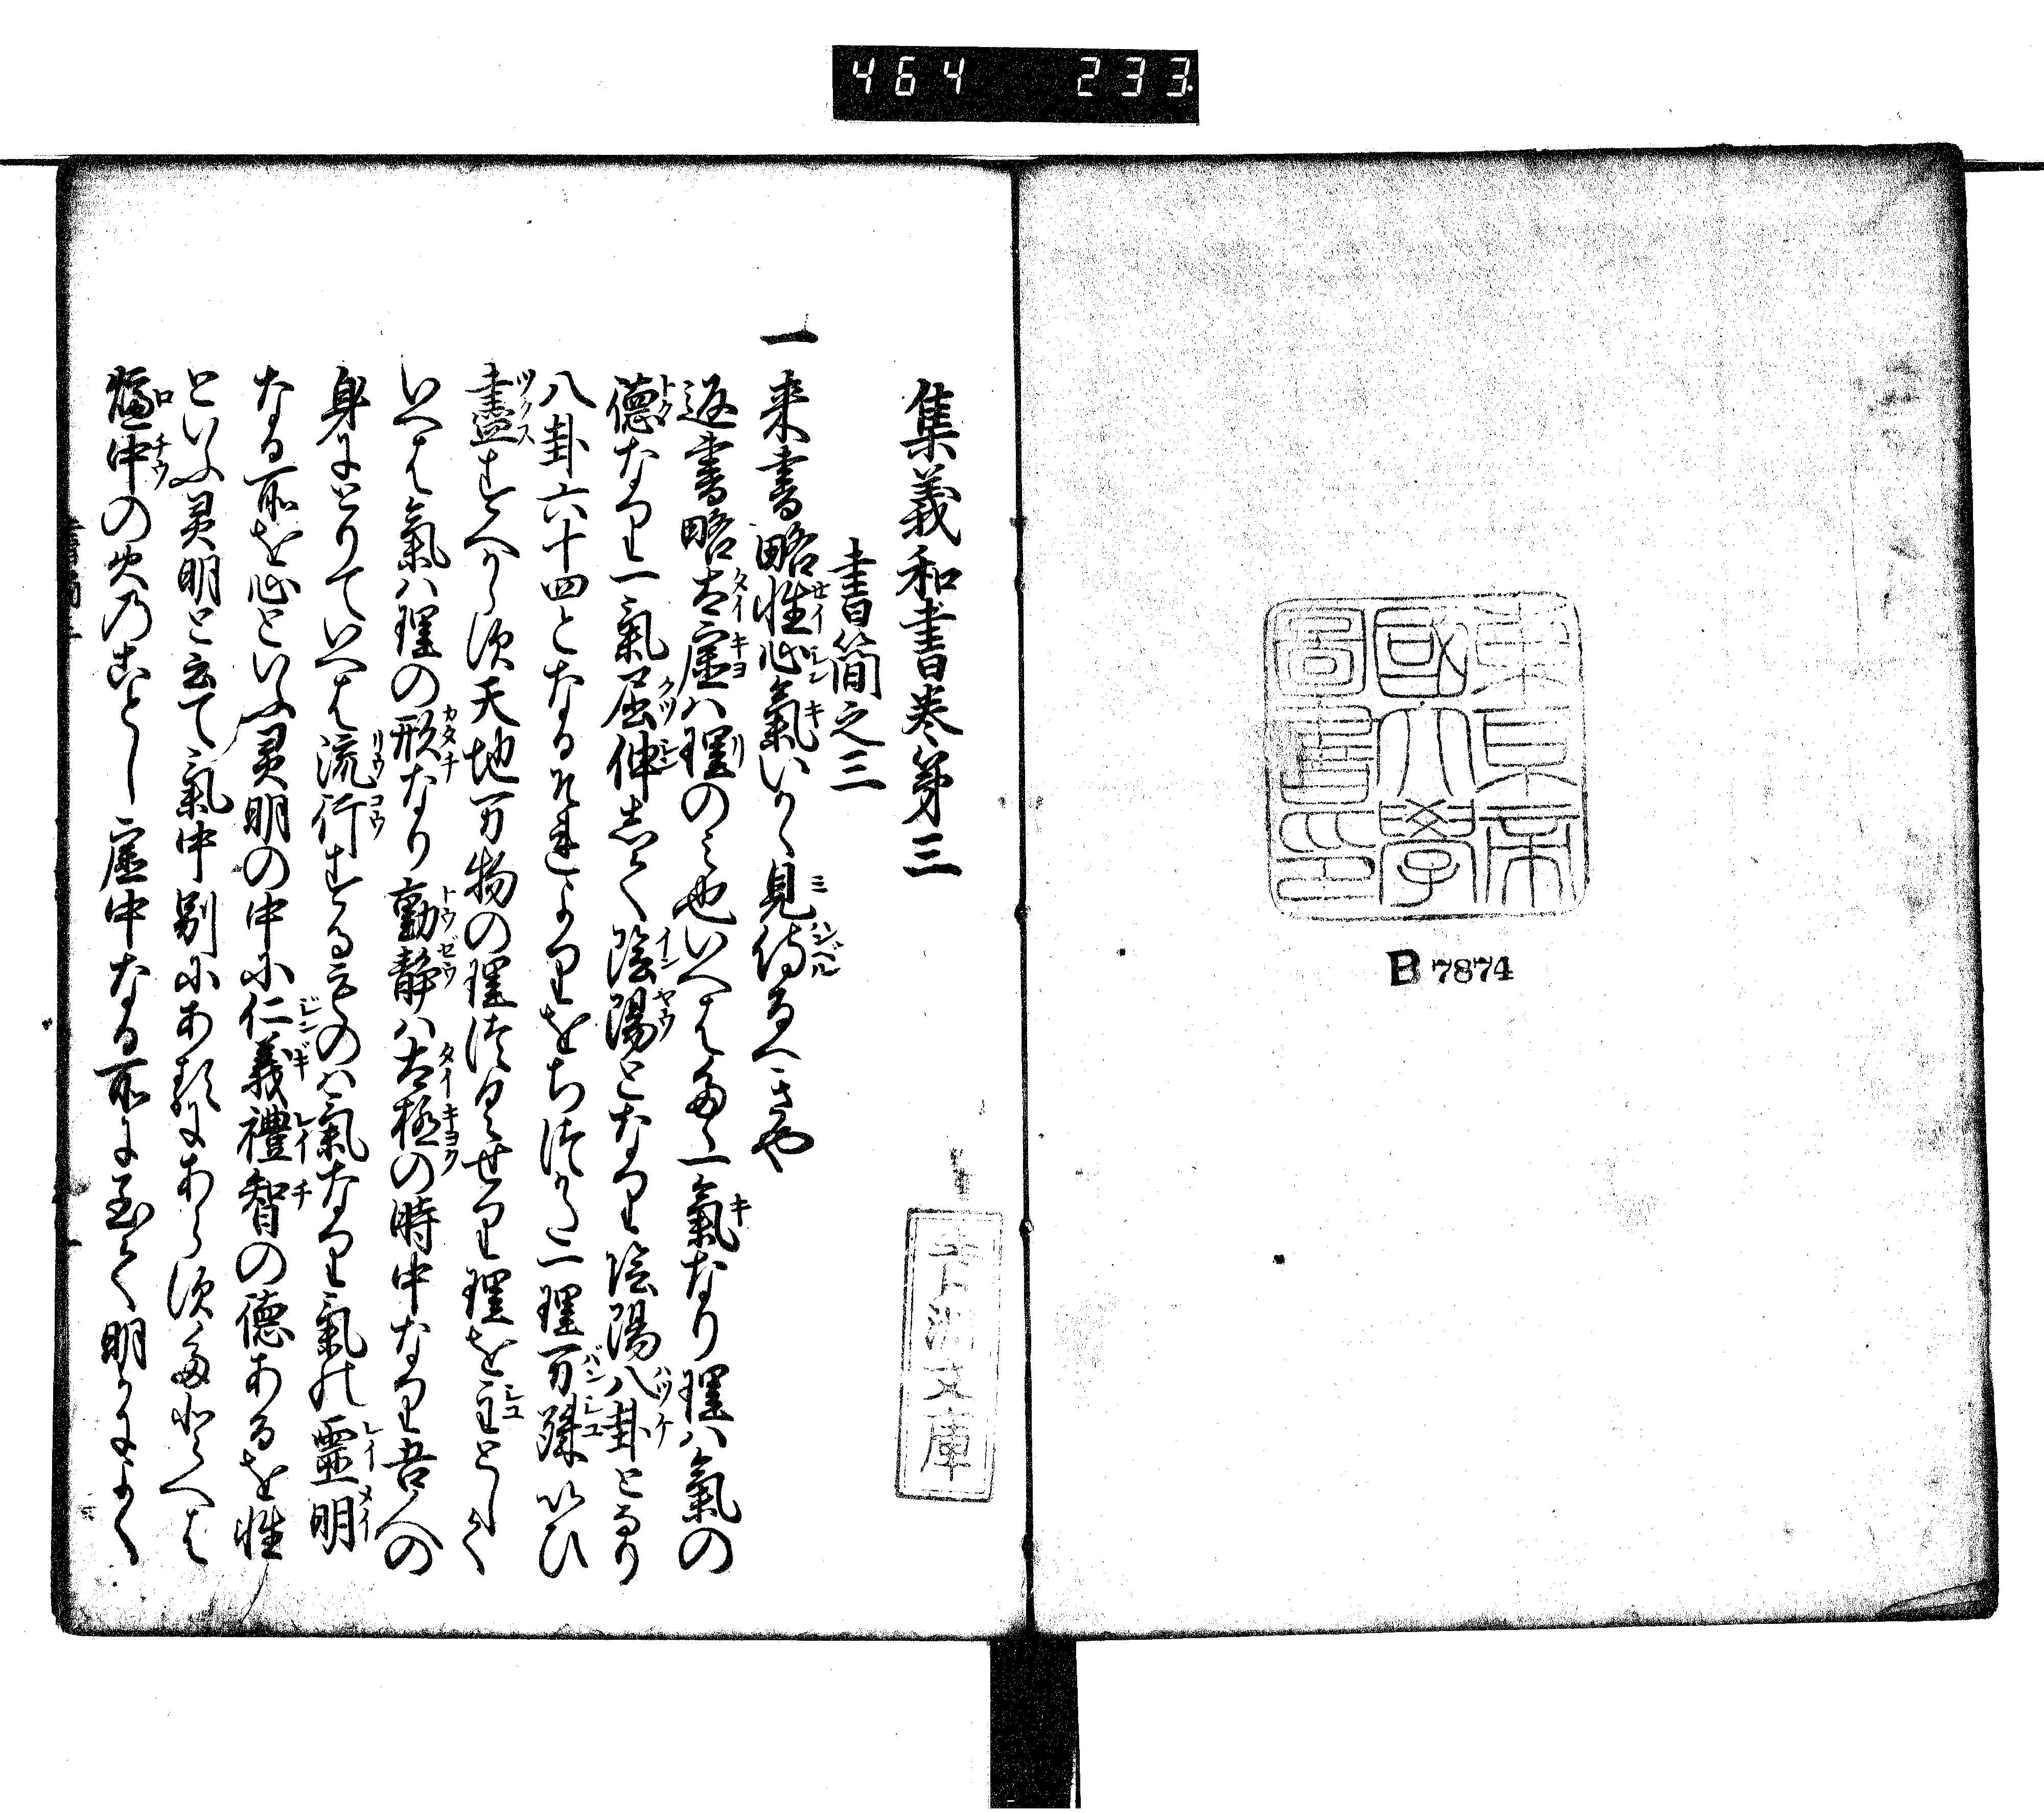 464 233
東京帝
國大學
圖書印
B 7874
集義和書巻第三
書簡之三
一来書略性心氣いかゝ見侍るへきや
返書略太虚ハ理のミ也いへはたゝ一氣なり理ハ氣の
徳なり一氣屈伸して陰陽となり陰陽八卦となり
八卦六十四となるそれよりをちつかた一理万殊いひ
盡すへからす天地万物の理つくせり理を主として
いへは氣ハ理の形なり動静ハ太極の時中なり吾人の
身にとりていへは流行するものハ氣なり氣の靈明
なる所を心といふ灵明の中に仁義禮智の徳あるを性
といふ灵明と云て氣中別にあるにあらすたとへは
爐中の火のことし虚中なる所に至て明かによく
文庫